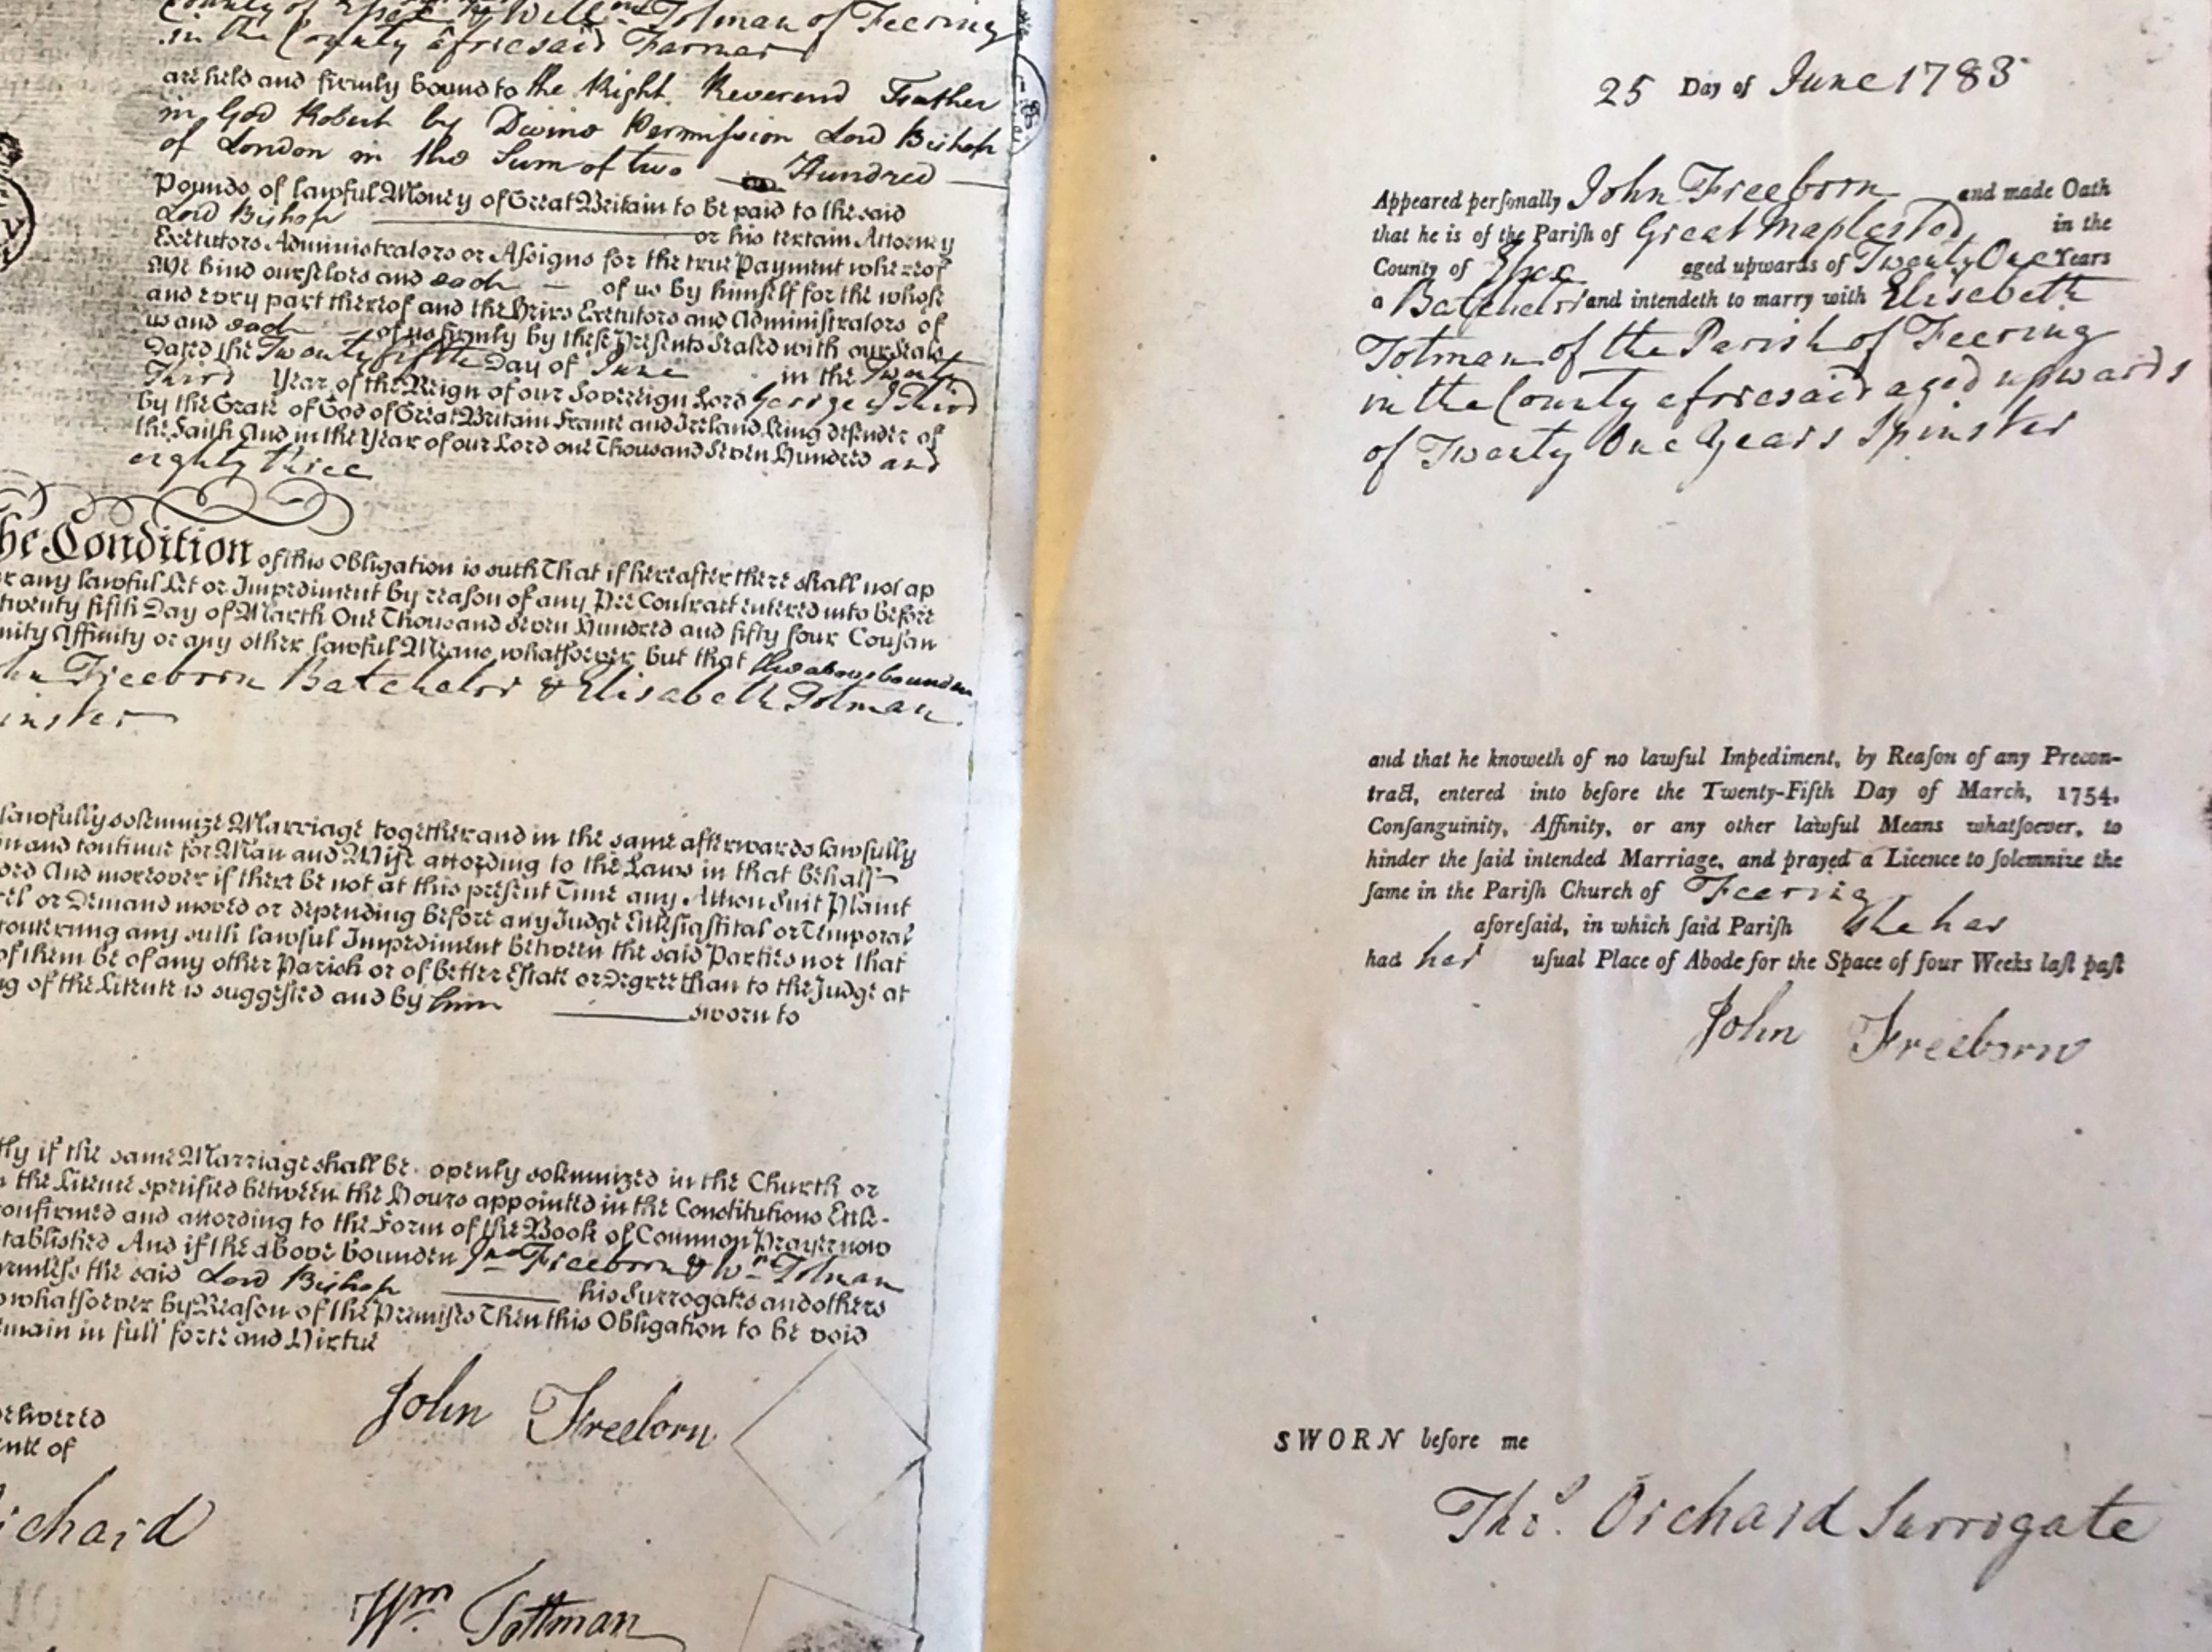 County of Essex & Willm Totman of Feering
in the County aforesaid Farmer
are held and firmly bound to the Right Reverend Father
in God Robert by Divine Permission Lord Bishop
of London in the Sum of two Hundred
Pounds of lawful Money of Great Britain to be paid to the said
Lord Bishop or his certain Attorney
Executors Administrators or Assigns for the true Payment whereof
We bind ourselves and each of us by himself for the whole
and every part thereof and the Heirs Executors and Administrators of
us and each of us firmly by these Presents Sealed with our Seals
Dated the Twenty fifth Day of June in the Twenty
Third Year of the Reign of our Sovereign Lord George ye Third
by the Grace of God of Great Britain France and Ireland King defender of
the Faith And in the Year of our Lord one Thousand Seven Hundred and
eighty three
he Condition of this Obligation is such That if hereafter there shall not ap
r any lawful Let or Impediment by reason of any Pre Contract entered into before
twenty fifth Day of March One Thousand Seven Hundred and fifty four Cousan
nity Affinity or any other lawful Means whatsoever but that the above bounden
hn Freeborn Batchelor & Elisabeth Totman
inster
lawfully solemnize Marriage together and in the same afterwards lawfully
n and continue for Man and Wife according to the Laws in that behalf
ded And moreover if there be not at this present Time any Action Suit Plaint
el or Demand moved or depending before any Judge Ecclesiastical or Temporal
oncerning any such lawful Impediment between the said Parties nor that
of them be of any other Parish or of better Estate or Degree than to the Judge at
ng of the Licence is suggested and by him sworn to
tly if the same Marriage shall be openly solemnized in the Church or
n the Licence specified between the Hours appointed in the Constitutions Eccle-
onfirmed and according to the Form of the Book of Common Prayer now
tablished And if the above bounden Jno Freeborn & Wm Totman
rmless the said Lord Bishop his Surrogates and others
whatsoever by Reason of the Premises Then this Obligation to be void
emain in full force and Virtue
John Freeborn
elivered
ence of
ichard
Wm. Tottman
25 Day of June 1783
Appeared perſonally John Freeborn and made Oath
that he is of the Pariſh of Great Maplested in the
County of Essex aged upwards of Twenty One Years
a Batchelor and intendeth to marry with Elisebeth
Totman of the Parish of Feering
in the County aforesaid aged upwards
of Twenty One Years Spinster
and that he knoweth of no lawful Impediment, by Reaſon of any Precon-
tract, entered into before the Twenty-Fifth Day of March, 1754.
Conſanguinity, Affinity, or any other lawful Means whatſoever, to
hinder the ſaid intended Marriage, and prayed a Licence to ſolemnize the
ſame in the Pariſh Church of Feering
aforeſaid, in which ſaid Pariſh She has
had her uſual Place of Abode for the Space of four Weeks laſt paſt
John Freeborn
SWORN before me
Thos. Orchard Surrogate